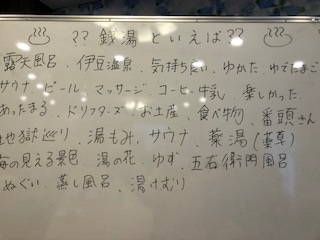 ♨ ?? 銭湯といえば?? ♨
露天風呂、伊豆温泉、気持ちいい、ゆかた、ゆでたまご
サウナ、ビール、マッサージ、コーヒー牛乳、楽しかった
あったまる、ドリフターズ、お土産、食べ物、番頭さん
地獄巡り、湯もみ、サウナ、薬湯(薬草)
海の見える景色、湯の花、ゆず、五右衛門風呂
ぬぐい、蒸し風呂、湯けむり